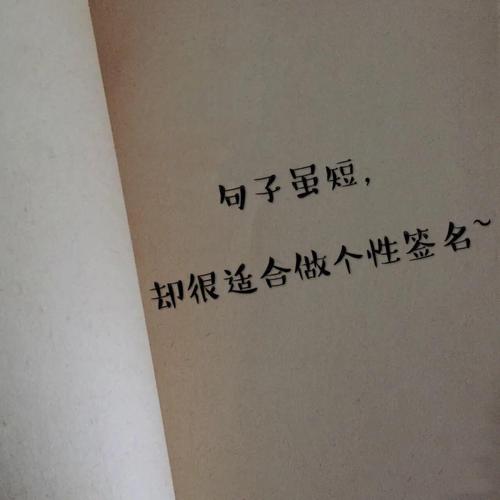 句子虽短，
却很适合做个性签名~